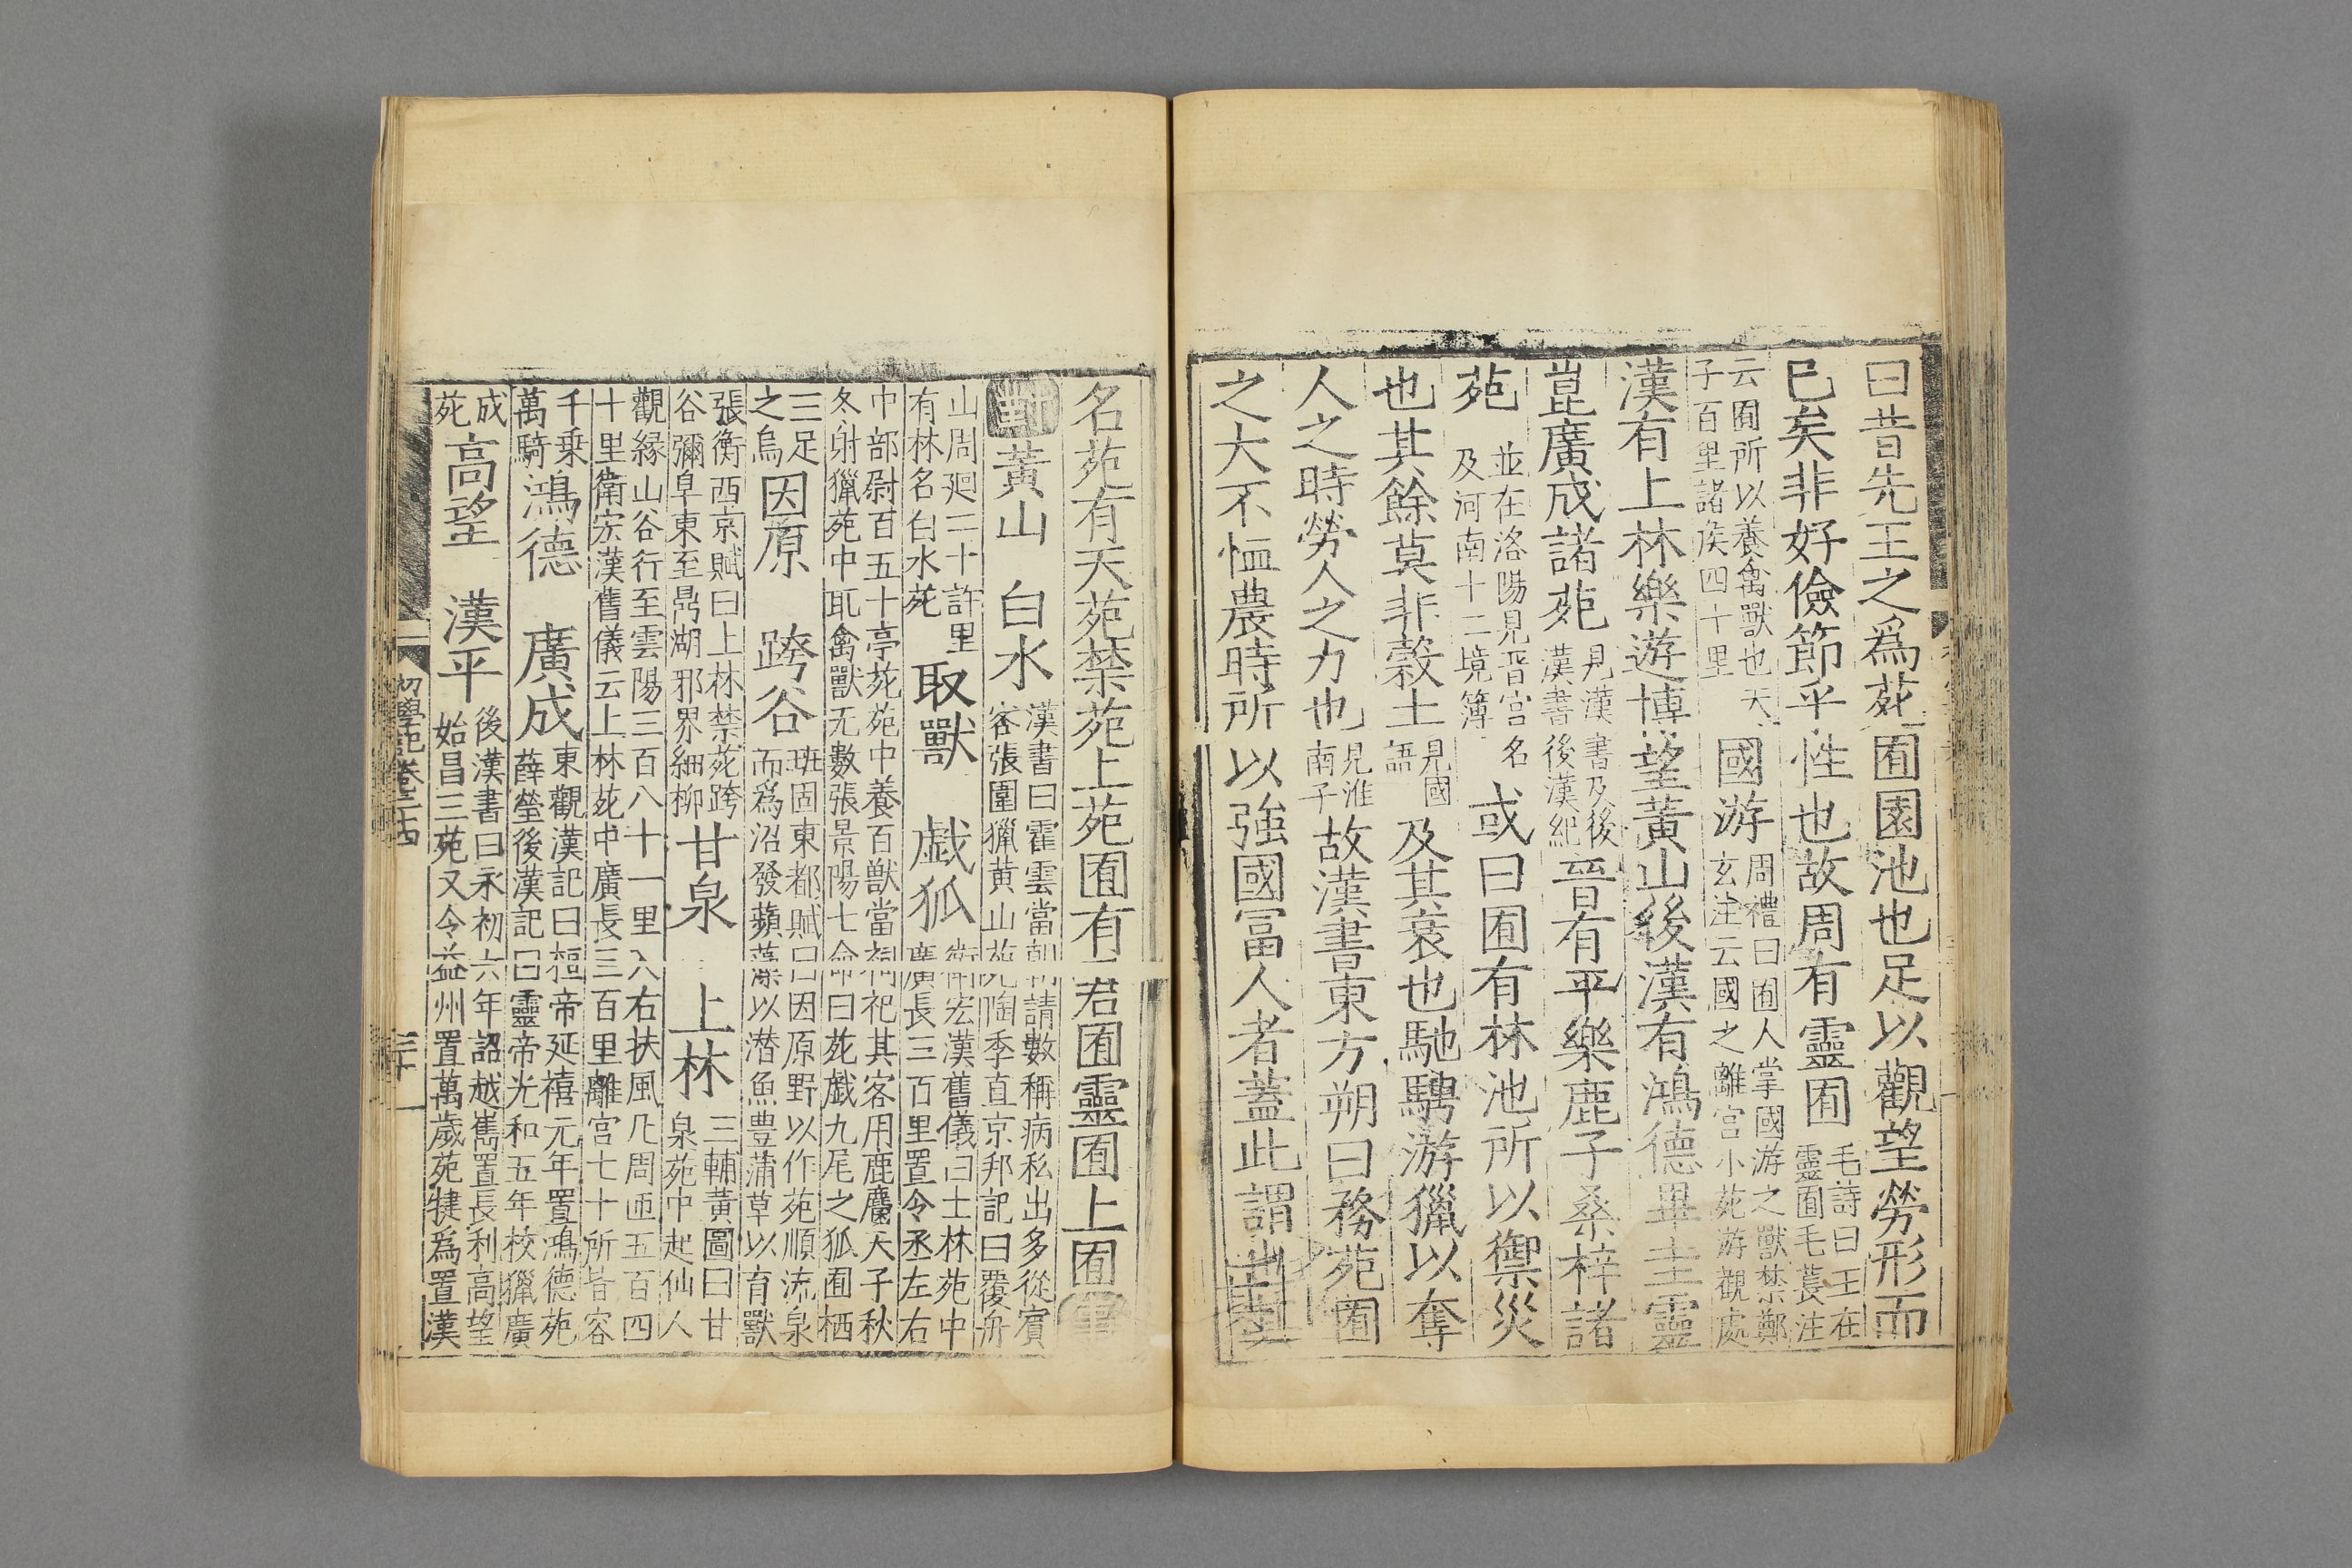 曰昔先王之爲苑囿園池也足以觀望勞形而
已矣非好儉節乎性也故周有靈囿毛詩曰王在靈囿毛萇注
云囿所以養禽獸也天子百里諸侯四十里國游周禮曰囿人掌國游之獸禁鄭玄注云國之離宫小苑游觀處
漢有上林樂游博望黃山後漢有鴻德畢圭靈
崑廣成諸苑見漢書及後漢書後漢紀晉有平樂鹿子桑梓諸
苑並在洛陽見晉宫名及河南十二境簿或曰囿有林池所以禦災
也其餘莫非穀土見國語及其衰也馳騁游獵以奪
人之時勞人之力也見淮南子故漢書東方朔曰務苑囿
之大不恤農時所以強國冨人者蓋此謂也
名苑有天苑禁苑上苑囿有君囿靈囿上囿事
對黃山 白水漢書曰霍雲當朝請數稱病私出多從賔客張圍獵黃山苑陶季直京邦記曰覆舟
山周廻二十許里有林名白水苑取獸 戯狐衛宏漢舊儀曰上林苑中廣長三百里置令丞左右
中部尉百五十亭苑苑中養百獸當祠祀其客用鹿麕天子秋冬射獵苑中取禽獸无數張景陽七命曰苑戯九尾之狐囿栖
三足之烏因原 跨谷班固東都賦曰因原野以作苑順流泉而爲沼發蘋藻以潜魚豊蒲草以育獸
張衡西京賦曰上林禁苑跨谷彌阜東至鼎湖邪界細柳甘泉 上林三輔黃圖曰甘泉苑中起仙人
觀緣山谷行至雲陽三百八十一里入右扶風凡周匝五百四十里衛宏漢舊儀云上林苑中廣長三百里離宫七十所皆容
千乗萬騎鴻德 廣成東觀漢記曰桓帝延禧元年置鴻德苑薛瑩後漢記曰靈帝光和五年校獵廣
成苑高望 漢平後漢書曰永初六年詔越嶲置長利高望始昌三苑又令益州置萬歳苑犍爲置漢
初學記卷二十四
三十一